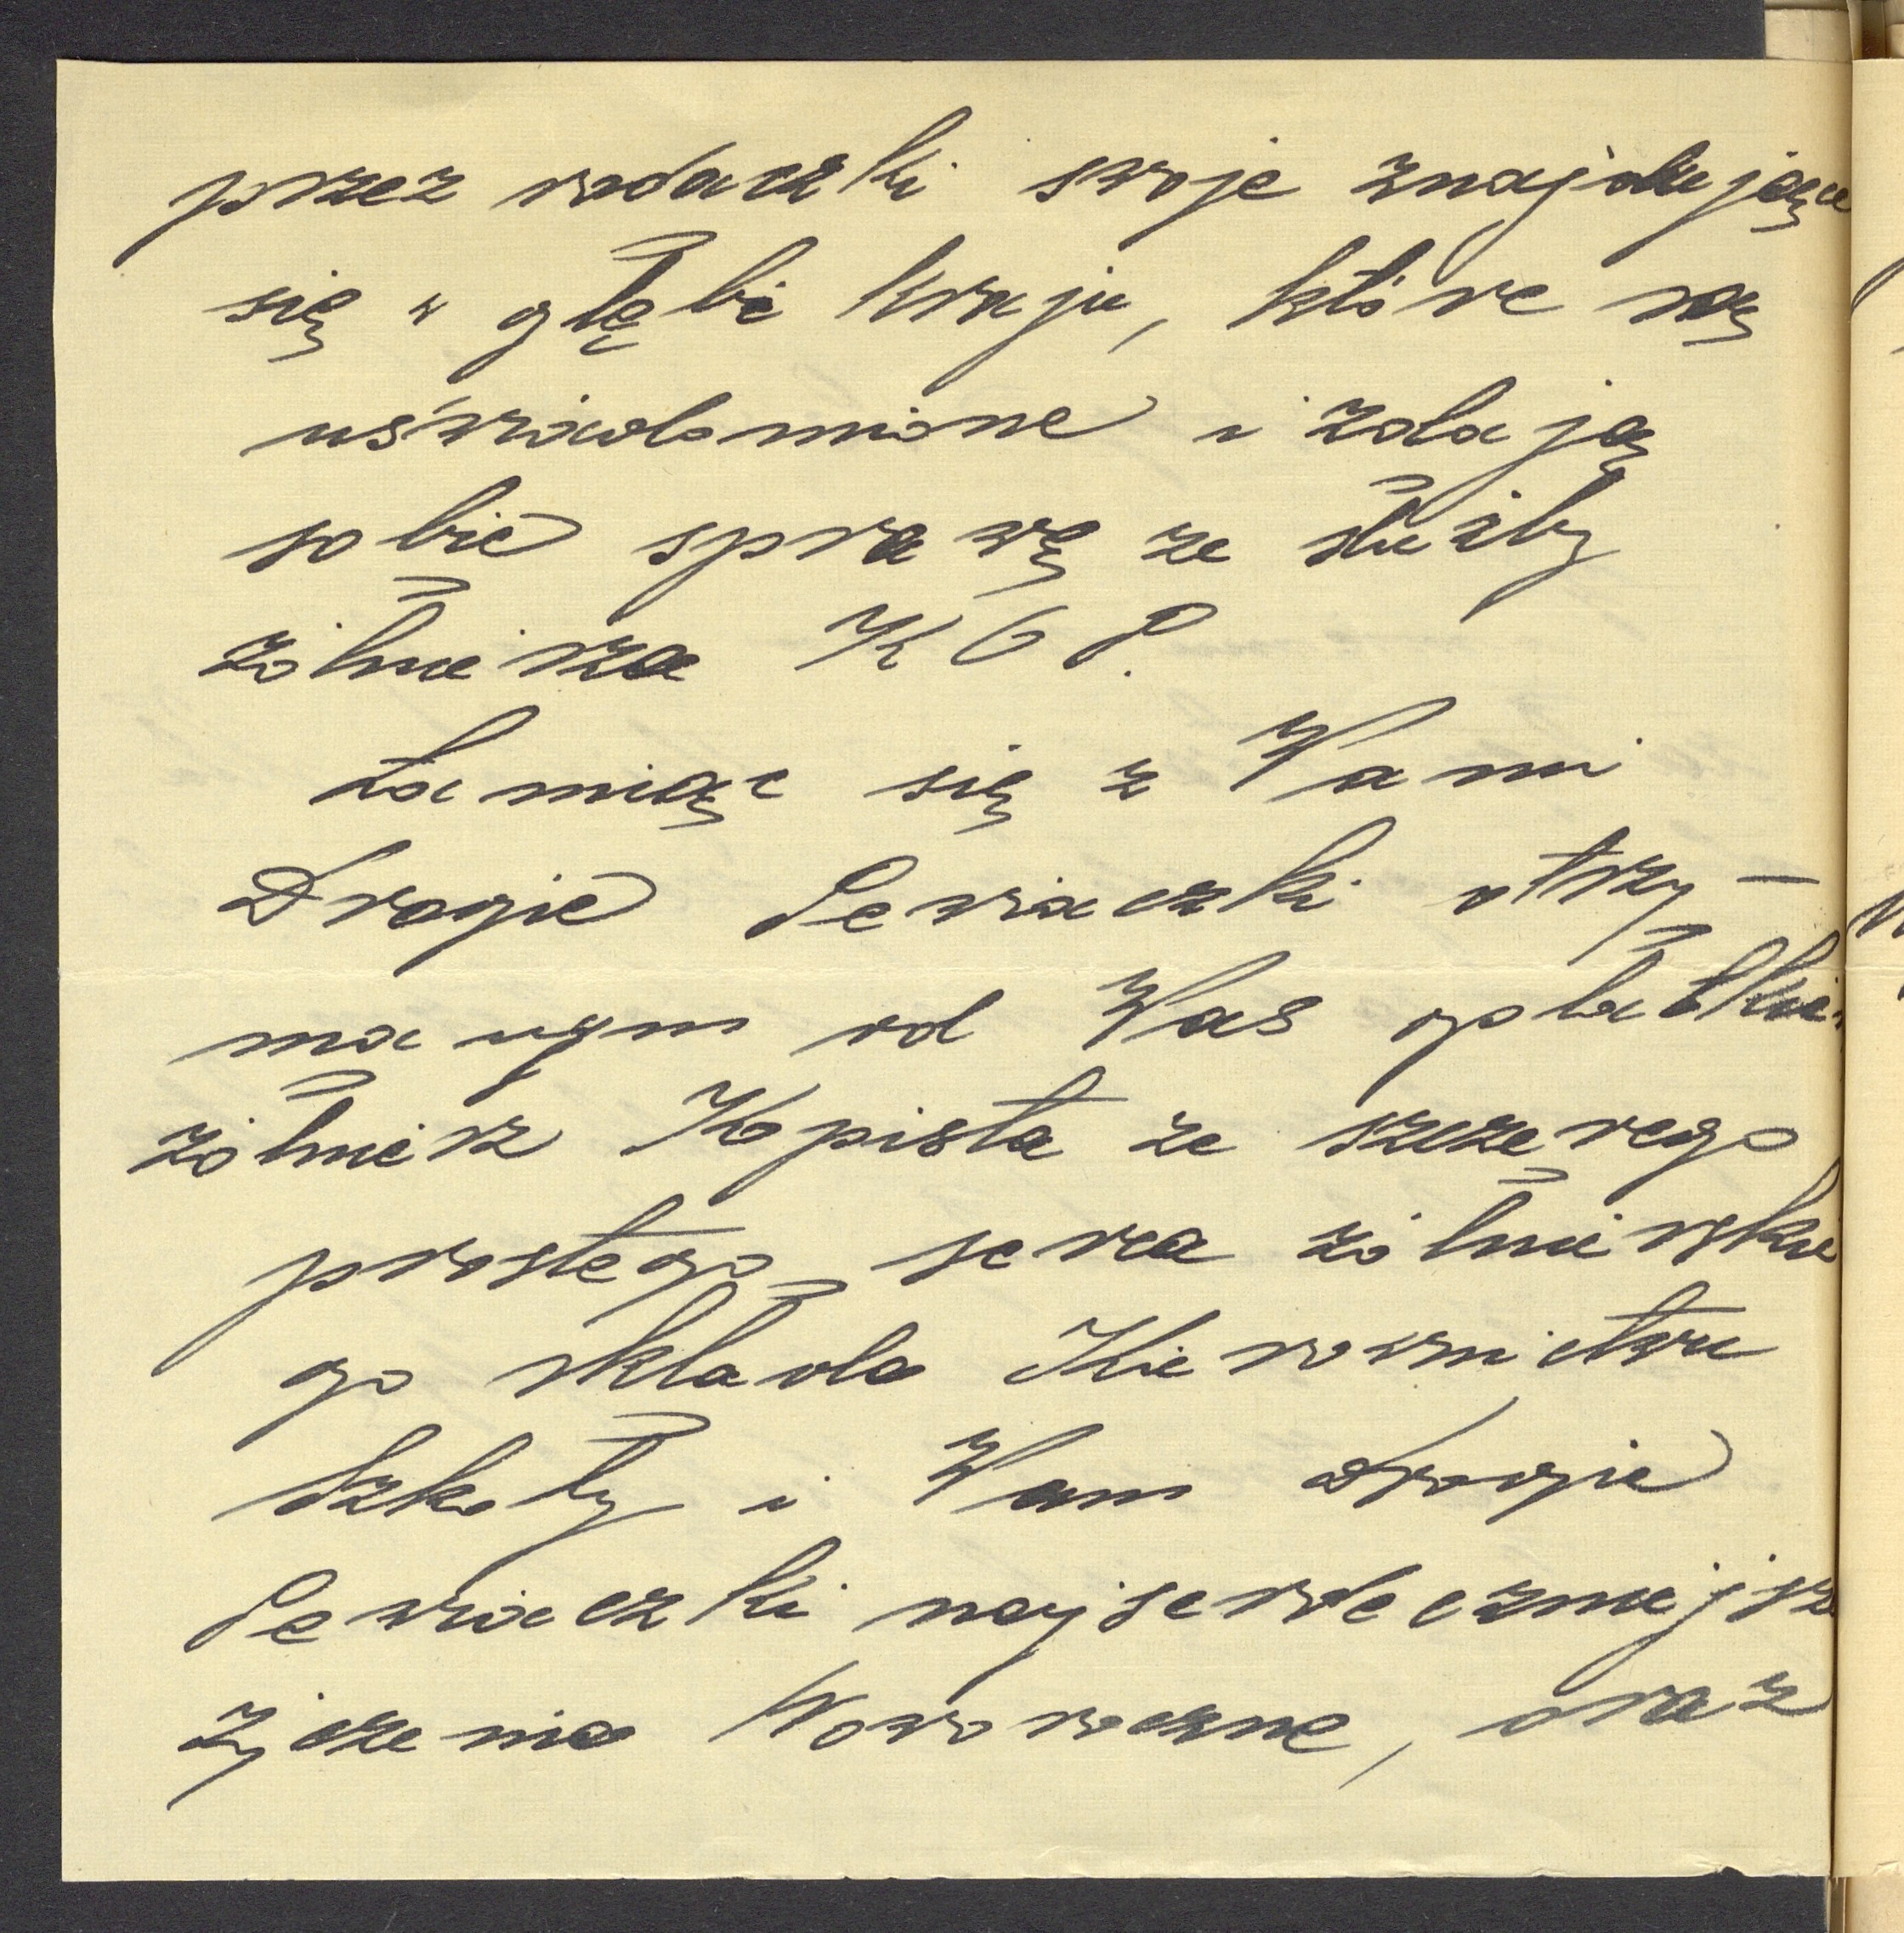 przez rodaczki swoje znajdujące
się w głębi kraju, które są
uświadomione i zdają
sobie sprawę ze służby
żołnierza K O P.
Łamiąc się z Wami
Drogie Pewiaczki otrzy-
manym od Was opłatkiem
żołnierz Kopista ze szczerego
prostego serca żołnierskie
go składa Kierownictwu
Szkoły i Wam drogie
Pewiaczki najserdeczniejsze
życzenia Noworoczne, oraz